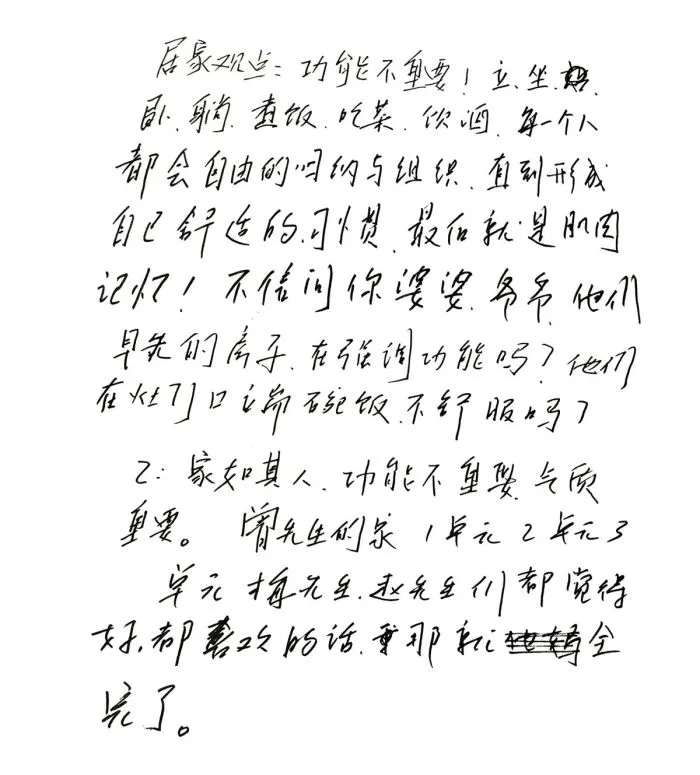 居家观点：功能不重要！立.坐.
卧.躺.煮饭.吃菜.饮酒.每一个人
都会自由的归纳与组织.直到形成
自己舒适的习惯.最后就是肌肉
记忆！不信问你婆婆.爷爷.他们
早先的房子.在强调功能吗？他们
在灶门口立端碗饭.不舒服吗？
2：家如其人.功能不重要.气质
重要。曾先生的家1单元2单元3
单元 梅先生.赵先生们都觉得
好.都喜欢的话.那就全
完了。